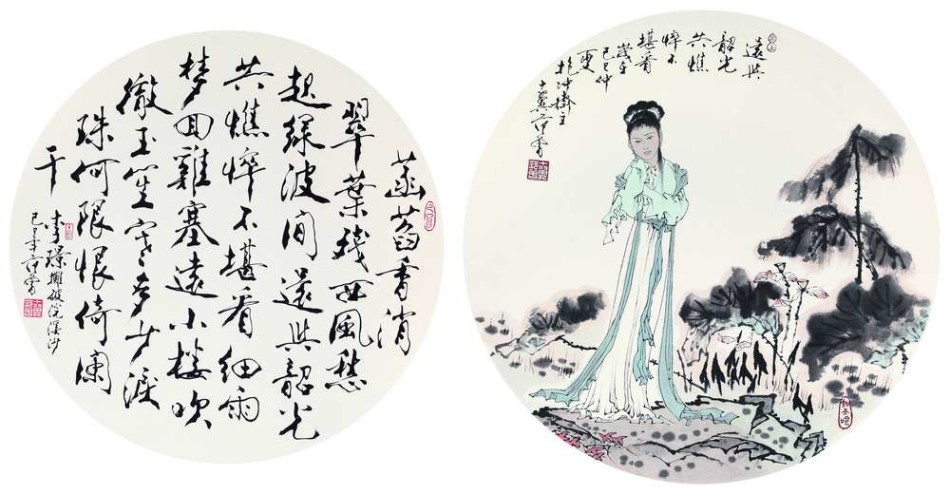 菡萏香消
翠葉殘西風愁
起綠波間還與韶光
共憔悴不堪看細雨
夢回雞塞遠小樓吹
徹玉笙寒多少淚
珠何限恨倚闌
干
李璟攤破浣溪沙
己巳年范曾
還與
韶光
共憔
悴不
堪看
歲在
己巳仲
夏
抱冲齋主
十翼范曾